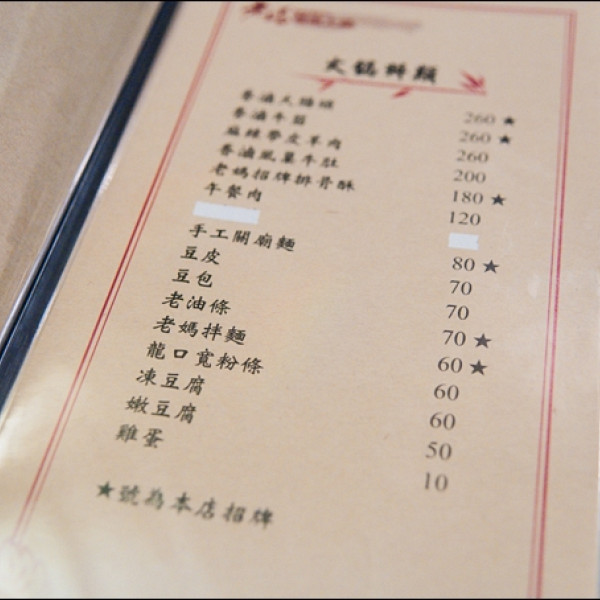 火鍋料類
香滷大腸頭 260 ★
香滷牛筋 260 ★
麻辣帶皮羊肉 260
香滷風菓牛肚 200
老媽招牌排骨酥 180 ★
午餐肉 120
手工關廟麵 80 ★
豆皮 70
豆包 70
老油條 70 ★
老媽拌麵 60 ★
龍口寬粉條 60
凍豆腐 60
嫩豆腐 50
雞蛋 10
★號為本店招牌